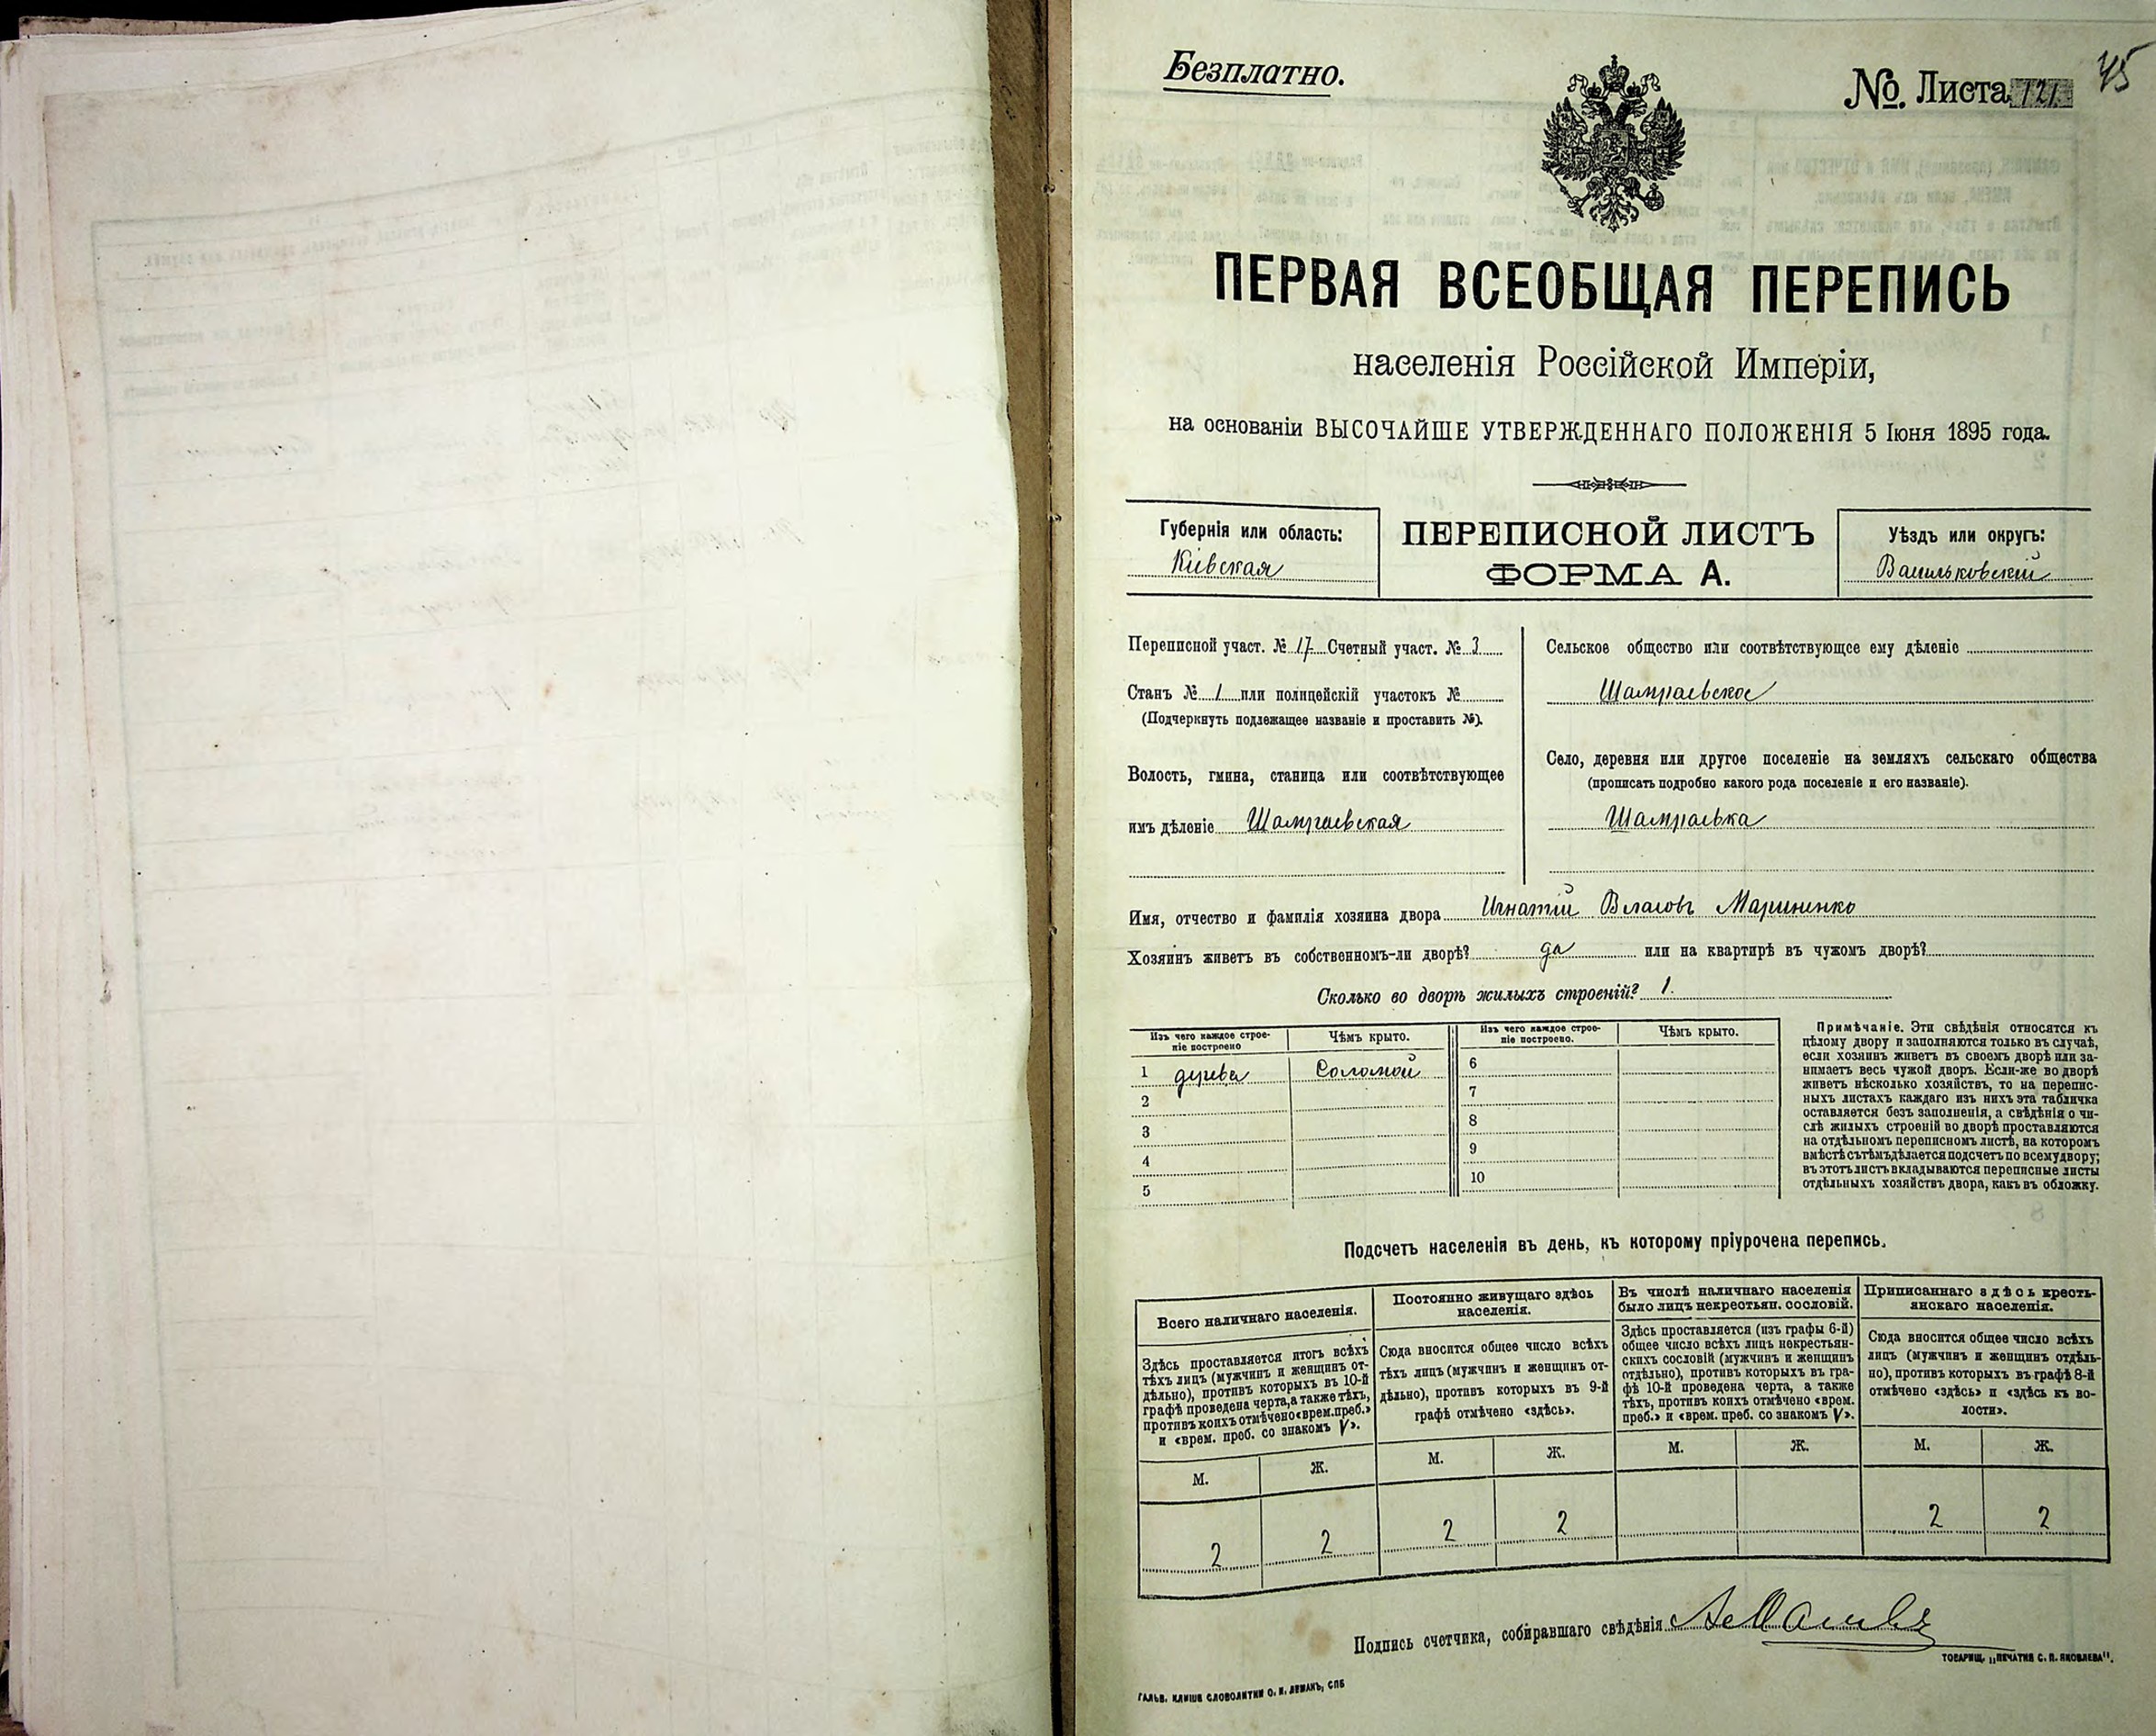 Безплатно.
№. Листа 121
45
ПЕРВАЯ ВСЕОБЩАЯ ПЕРЕПИСЬ
населенія Россійской Имперіи,
на основаніи ВЫСОЧАЙШЕ УТВЕРЖДЕННАГО ПОЛОЖЕНІЯ 5 Іюня 1895 года.
Губернія или область:
Кіевская
ПЕРЕПИСНОЙ ЛИСТЪ
ФОРМА А.
Уѣздъ или округъ:
Васильковскій
Переписной участ. № 17 Счетный участ. № 3
Станъ № 1 или полицейскій участокъ №
(Подчеркнуть подлежащее названіе и проставить №).
Волость, гмина, станица или соотвѣтствующее
имъ дѣленіе Шамраевская
Сельское общество или соотвѣтствующее ему дѣленіе
Шамраевское
Село, деревня или другое поселеніе на земляхъ сельскаго общества
(прописать подробно какого рода поселеніе и его названіе).
Шамраевка
Имя, отчество и фамилія хозяина двора Игнатій Власовъ Мариненко
Хозяинъ живетъ въ собственномъ-ли дворѣ? да или на квартирѣ въ чужомъ дворѣ?
Сколько во дворѣ жилыхъ строеній? 1.
Изъ чего каждое строе-
ніе построено
Чѣмъ крыто.
Изъ чего каждое строе-
ніе построено.
Чѣмъ крыто.
1 дерева Соломой
2
3
4
5
6
7
8
9
10
Примѣчаніе. Эти свѣдѣнія относятся къ
цѣлому двору и заполняются только въ случаѣ,
если хозяинъ живетъ въ своемъ дворѣ или за-
нимаетъ весь чужой дворъ. Если-же во дворѣ
живетъ нѣсколько хозяйствъ, то на перепис-
ныхъ листахъ каждаго изъ нихъ эта табличка
оставляется безъ заполненія, а свѣдѣнія о чи-
слѣ жилыхъ строеній во дворѣ проставляются
на отдѣльномъ переписномъ листѣ, на которомъ
вмѣстѣ съ тѣмъ дѣлается подсчетъ по всему двору;
въ этотъ листъ вкладываются переписные листы
отдѣльныхъ хозяйствъ двора, какъ въ обложку.
Подсчетъ населенія въ день, къ которому пріурочена перепись.
Всего наличнаго населенія.
Здѣсь проставляется итогъ всѣхъ
тѣхъ лицъ (мужчинъ и женщинъ от-
дѣльно), противъ которыхъ въ 10-й
графѣ проведена черта, а также тѣхъ,
противъ коихъ отмѣчено «врем. преб.»
и «врем. преб. со знакомъ V».
М. Ж.
2 2
Постоянно живущаго здѣсь
населенія.
Сюда вносится общее число всѣхъ
тѣхъ лицъ (мужчинъ и женщинъ от-
дѣльно), противъ которыхъ въ 9-й
графѣ отмѣчено «здѣсь».
М. Ж.
2 2
Въ числѣ наличнаго населенія
было лицъ некрестьян. сословій.
Здѣсь проставляется (изъ графы 6-й)
общее число всѣхъ лицъ некрестьян-
скихъ сословій (мужчинъ и женщинъ
отдѣльно), противъ которыхъ въ гра-
фѣ 10-й проведена черта, а также
тѣхъ, противъ коихъ отмѣчено «врем.
преб.» и «врем. преб. со знакомъ V».
М. Ж.
Приписаннаго здѣсь кресть-
янскаго населенія.
Сюда вносится общее число всѣхъ
лицъ (мужчинъ и женщинъ отдѣль-
но), противъ которыхъ въ графѣ 8-й
отмѣчено «здѣсь» и «здѣсь къ во-
лости».
М. Ж.
2 2
Подпись счетчика, собиравшаго свѣдѣнія
ТОВАРИЩ. „ПЕЧАТНЯ С. П. ЯКОВЛЕВА".
ГАЛЬВ. КЛИШЕ СЛОВОЛИТНИ О. И. ЛЕМАНЪ, СПБ